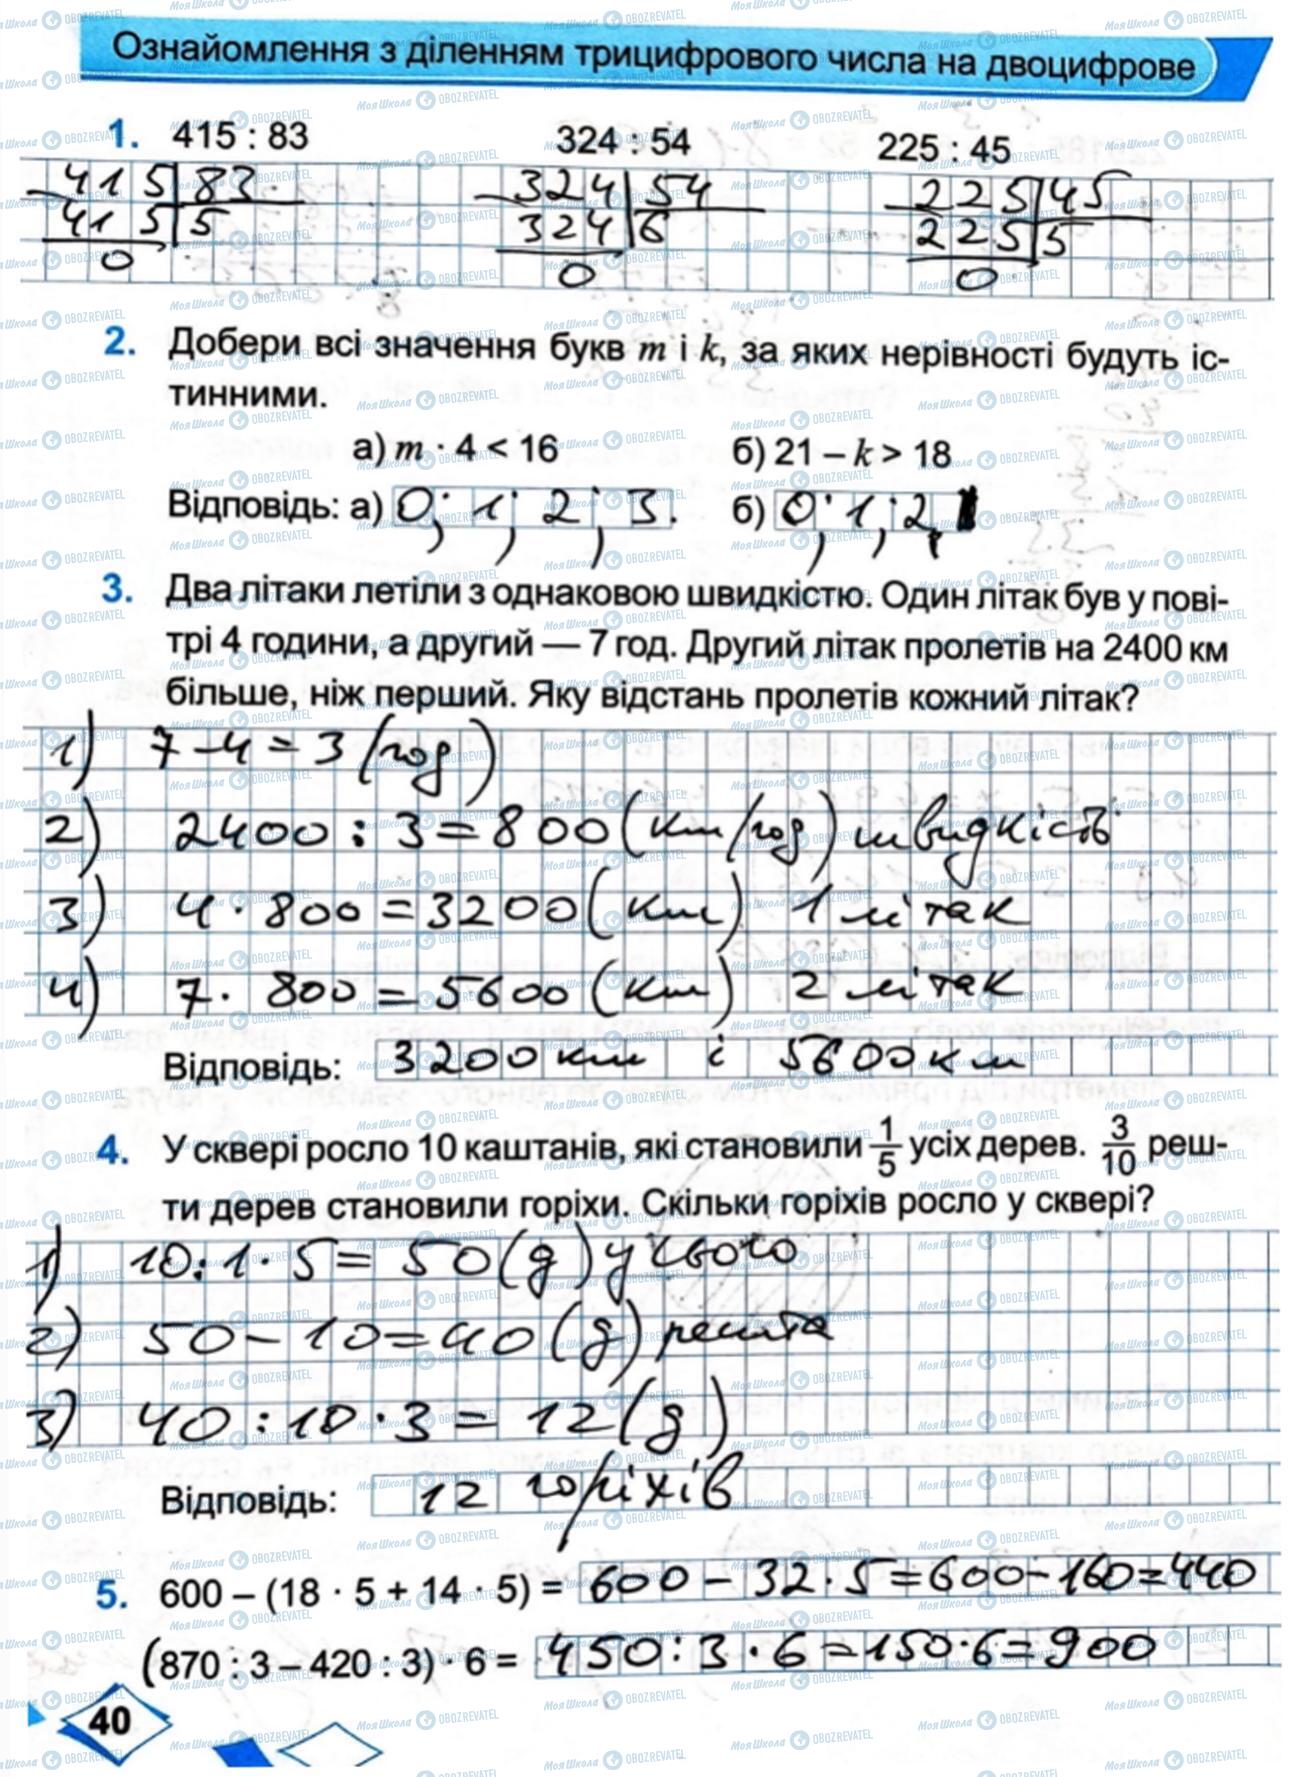 Ознайомлення з діленням трицифрового числа на двоцифрове
1. 415 : 83 324 : 54 225 : 45
415 83 324 54 225 45
415 5 324 6 225 5
0 0 0
2. Добери всі значення букв m і k, за яких нерівності будуть іс-
тинними.
а) m · 4 < 16 б) 21 – k > 18
Відповідь: а) 0; 1; 2; 3. б) 0; 1; 2
3. Два літаки летіли з однаковою швидкістю. Один літак був у пові-
трі 4 години, а другий — 7 год. Другий літак пролетів на 2400 км
більше, ніж перший. Яку відстань пролетів кожний літак?
1) 7 - 4 = 3 (год)
2) 2400 : 3 = 800 (км/год) швидкість
3) 4 · 800 = 3200 (км) 1 літак
4) 7 · 800 = 5600 (км) 2 літак
Відповідь: 3200 км і 5600 км
4. У сквері росло 10 каштанів, які становили 1/5 усіх дерев. 3/10 реш-
ти дерев становили горіхи. Скільки горіхів росло у сквері?
1) 10 : 1 · 5 = 50 (д) усього
2) 50 - 10 = 40 (д) решта
3) 40 : 10 · 3 = 12 (д)
Відповідь: 12 горіхів
5. 600 – (18 · 5 + 14 · 5) = 600 - 32 · 5 = 600 - 160 = 440
(870 : 3 – 420 : 3) · 6 = 450 : 3 · 6 = 150 · 6 = 900
40
МояШкола OBOZREVATEL